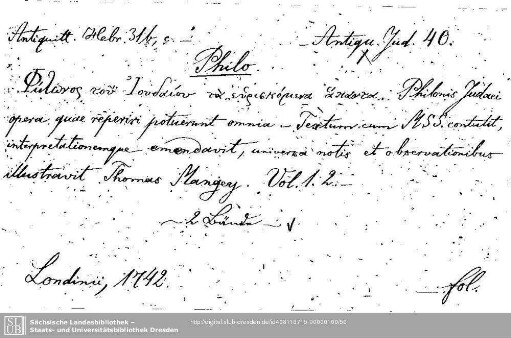 Antiquitt. Hebr. 31b, c. — Antiqu. Jud. 40.
Philo
Φίλωνος τοῦ Ἰουδαίου τὰ εὑρισκόμενα ἅπαντα. Philonis Judaei
opera quae reperiri potuerunt omnia – Textum cum MSS. contulit,
interpretationemque emendavit, universa notis et observationibus
illustravit Thomas Mangey. Vol. 1. 2. –
– 2 Bände –
Londini, 1742. – fol.
SLUB
Sächsische Landesbibliothek –
Staats- und Universitätsbibliothek Dresden